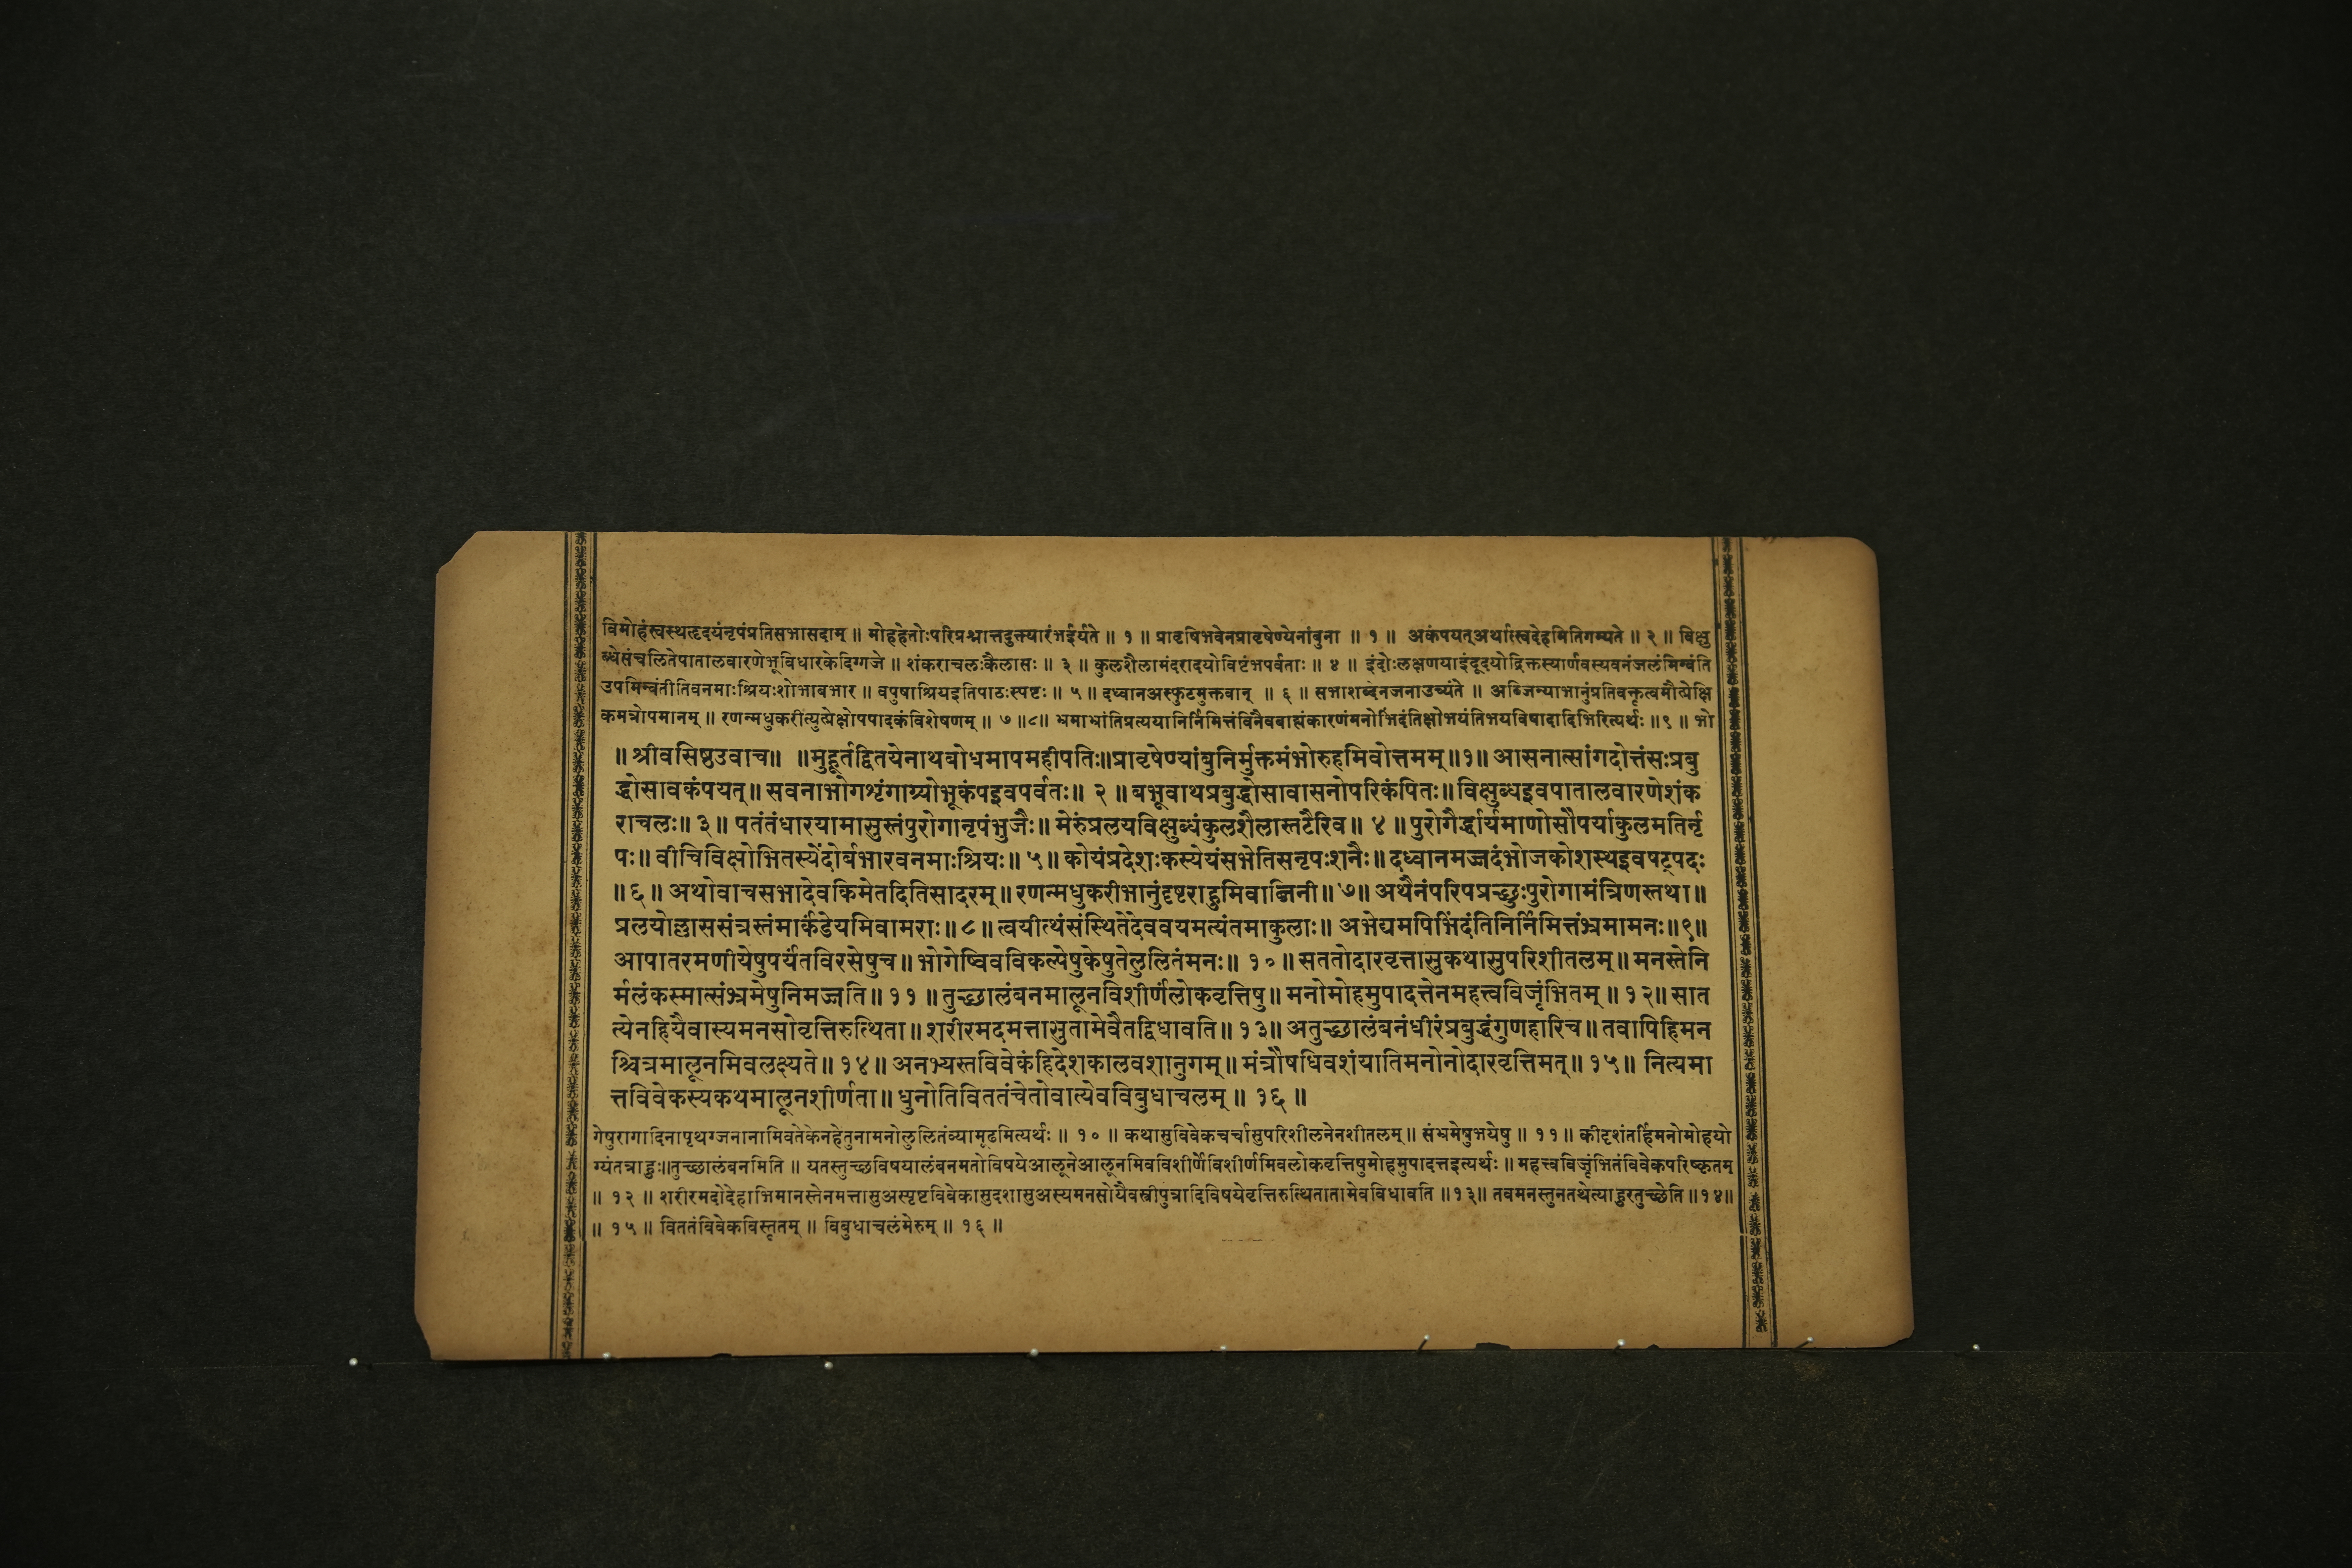 विमोहंस्वस्थहृदयंनृपंप्रतिसभासदाम् ॥ मोहहेतोःपरिप्रश्नात्तदुक्त्यारंभईर्यते ॥ १ ॥ प्रावृषिभवेनप्रावृषेण्येनांबुना ॥ १ ॥ अकंपयत्अर्थात्स्वदेहमितिगम्यते ॥ २ ॥ विक्षु
ब्धेसंचलितेपातालवारणेभूविधारकेदिग्गजे ॥ शंकराचलःकैलासः ॥ ३ ॥ कुलशैलामंदरादयोविष्टंभपर्वताः ॥ ४ ॥ इंदोःलक्षणयाइंदूदयोद्रिक्तस्यार्णवस्यवनंजलंमिन्वंति
उपमिन्वंतीतिवनमाःश्रियःशोभाबभार ॥ वपुषाश्रियइतिपाठःस्पष्टः ॥ ५ ॥ दध्वानअस्फुटमुक्तवान् ॥ ६ ॥ सभाशब्देनजनाउच्यंते ॥ अब्जिन्याभानुंप्रतिवक्तृत्वमौत्प्रेक्षि
कमत्रोपमानम् ॥ रणन्मधुकरीत्युत्प्रेक्षोपपादकंविशेषणम् ॥ ७ ॥८॥ भ्रमाभ्रांतिप्रत्ययानिर्निमित्तंविनैवबाह्यंकारणंमनोभिंदंतिक्षोभयंतिभयविषादादिभिरित्यर्थः ॥९ ॥ भो
॥ श्रीवसिष्ठउवाच॥ ॥मुहूर्तद्वितयेनाथबोधमापमहीपतिः॥प्रावृषेण्यांबुनिर्मुक्तमंभोरुहमिवोत्तमम्॥१॥ आसनात्सांगदोत्तंसःप्रबु
द्धोसावकंपयत्॥ सवनाभोगशृंगाग्र्योभूकंपइवपर्वतः॥ २ ॥ बभूवाथप्रबुद्धोसावासनोपरिकंपितः॥ विक्षुब्धइवपातालवारणेशंक
राचलः॥ ३॥ पतंतंधारयामासुस्तंपुरोगानृपंभुजैः॥ मेरुंप्रलयविक्षुब्धंकुलशैलास्तटैरिव॥ ४ ॥ पुरोगैर्द्धार्यमाणोसौपर्याकुलमतिर्नृ
पः॥ वीचिविक्षोभितस्येंदोर्बभारवनमाःश्रियः॥ ५॥ कोयंप्रदेशःकस्येयंसभेतिसनृपःशनैः॥ दध्वानमज्जदंभोजकोशस्थइवषट्पदः
॥ ६॥ अथोवाचसभादेवकिमेतदितिसादरम्॥ रणन्मधुकरीभानुंदृष्टराहुमिवाब्जिनी॥ ७॥ अथैनंपरिपप्रच्छुःपुरोगामंत्रिणस्तथा॥
प्रलयोल्लाससंत्रस्तंमार्कंडेयमिवामराः॥ ८॥ त्वयीत्थंसंस्थितेदेववयमत्यंतमाकुलाः॥ अभेद्यमपिभिंदंतिनिर्निमित्तंभ्रमामनः॥९॥
आपातरमणीयेषुपर्यंतविरसेषुच॥ भोगेष्विवविकल्पेषुकेषुतेलुलितंमनः॥ १०॥ सततोदारवृत्तासुकथासुपरिशीतलम्॥ मनस्तेनि
र्मलंकस्मात्संभ्रमेषुनिमज्जति॥ ११ ॥ तुच्छालंबनमालूनविशीर्णंलोकवृत्तिषु॥ मनोमोहमुपादत्तेनमहत्त्वविजृंभितम्॥ १२॥ सात
त्येनहियैवास्यमनसोवृत्तिरुत्थिता॥ शरीरमदमत्तासुतामेवैतद्विधावति॥ १३॥ अतुच्छालंबनंधीरंप्रबुद्धंगुणहारिच॥ तवापिहिमन
श्चित्रमालूनमिवलक्ष्यते॥ १४॥ अनभ्यस्तविवेकंहिदेशकालवशानुगम्॥ मंत्रौषधिवशंयातिमनोनोदारवृत्तिमत्॥ १५॥ नित्यमा
त्तविवेकस्यकथमालूनशीर्णता॥ धुनोतिविततंचेतोवात्येवविबुधाचलम्॥ १६ ॥
गेषुरागादिनापृथग्जनानामिवतेकेनहेतुनामनोलुलितंव्यामूढमित्यर्थः ॥ १० ॥ कथासुविवेकचर्चासुपरिशीलनेनशीतलम्॥ संभ्रमेषुभयेषु ॥ ११॥ कीदृशंतर्हिमनोमोहयो
ग्यंतत्राहुः॥तुच्छालंबनमिति ॥ यतस्तुच्छविषयालंबनमतोविषयेआलूनेआलूनमिवविशीर्णेविशीर्णमिवलोकवृत्तिषुमोहमुपादत्तइत्यर्थः ॥ महत्त्वविजृंभितंविवेकपरिष्कृतम्
॥ १२ ॥ शरीरमदोदेहाभिमानस्तेनमत्तासुअस्पृष्टविवेकासुदशासुअस्यमनसोयैवस्त्रीपुत्रादिविषयेवृत्तिरुत्थितातामेवविधावति ॥१३॥ तवमनस्तुनतथेत्याहुरतुच्छेति ॥१४॥
॥ १५ ॥ विततंविवेकविस्तृतम् ॥ विबुधाचलंमेरुम् ॥ १६ ॥